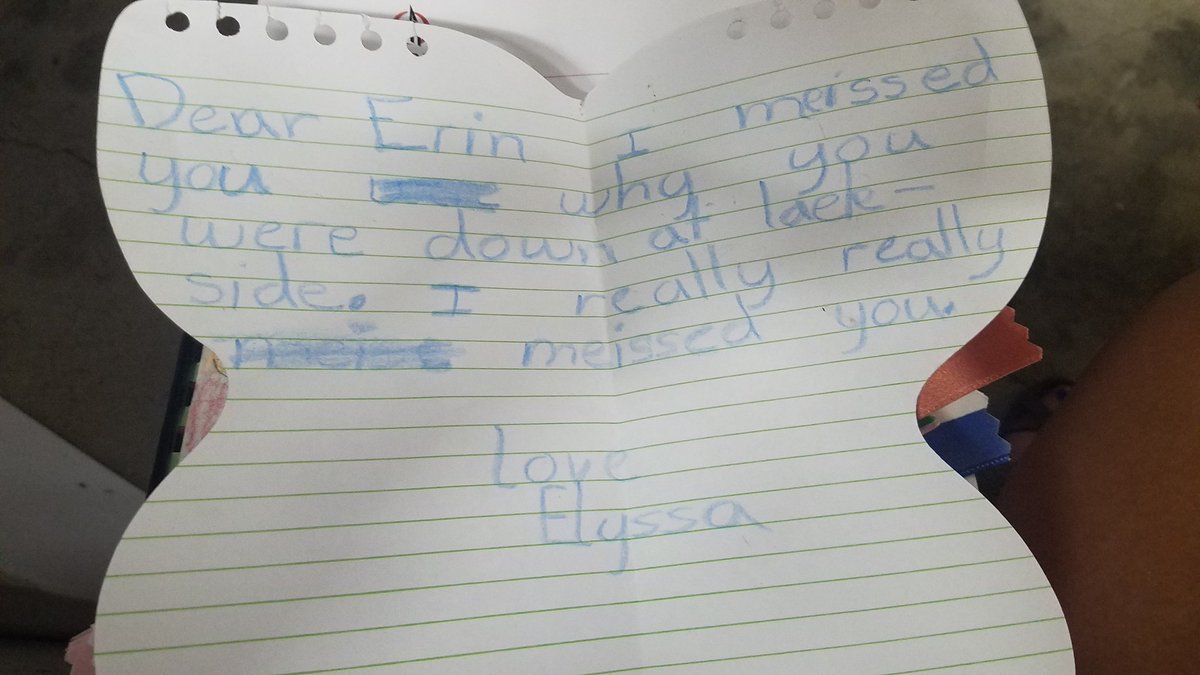 Dear Erin I meissed
you why you
were down at laek-
side. I really really
meissed you.
Love
Elyssa